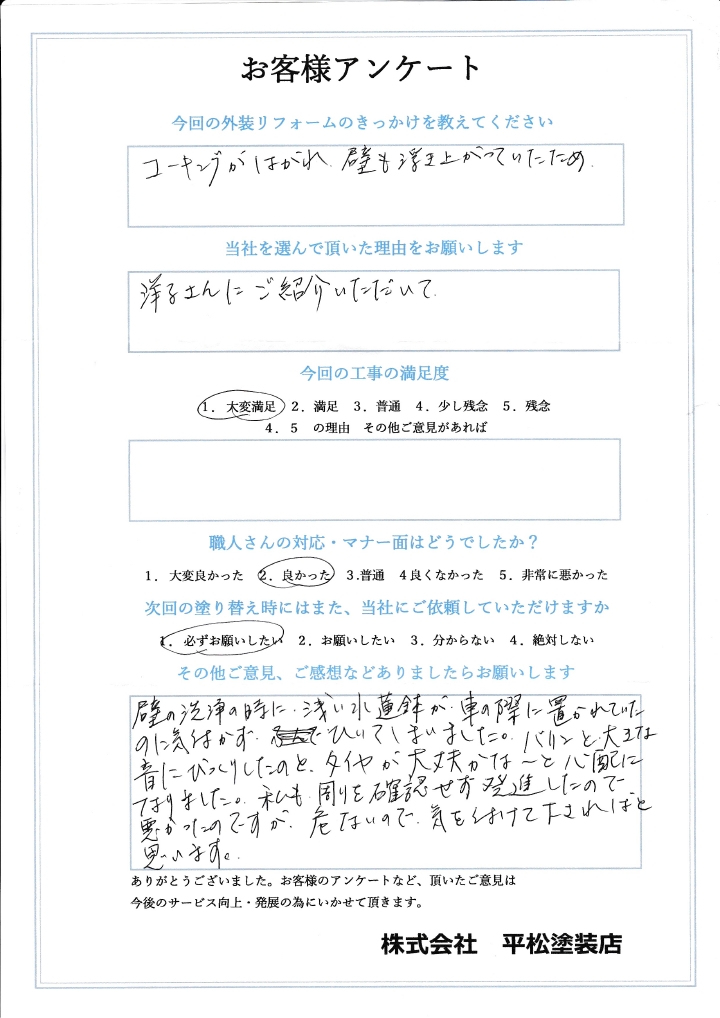 お客様アンケート
今回の外装リフォームのきっかけを教えてください
コーキングがはがれ、壁も浮き上がっていたため、
当社を選んで頂いた理由をお願いします
洋子さんにご紹介いただいて、
今回の工事の満足度
1. 大変満足 2. 満足 3. 普通 4. 少し残念 5. 残念
4. 5 の理由 その他ご意見があれば
職人さんの対応・マナー面はどうでしたか?
1. 大変良かった 2. 良かった 3.普通 4良くなかった 5. 非常に悪かった
次回の塗り替え時にはまた、当社にご依頼していただけますか
1. 必ずお願いしたい 2. お願いしたい 3. 分からない 4. 絶対しない
その他ご意見、ご感想などありましたらお願いします
壁の洗浄の時に、浅い水蓮鉢が、車の隣に置かれていた
のに気付かず、ひいてしまいました。バリンと大きな
音にびっくりしたのと、タイヤが大丈夫かな〜と心配に
なりました。私も、周りを確認せず発進したので
悪かったのですが、危ないので、気を付けて下さればと
思います。
ありがとうございました。お客様のアンケートなど、頂いたご意見は
今後のサービス向上・発展の為にいかせて頂きます。
株式会社 平松塗装店